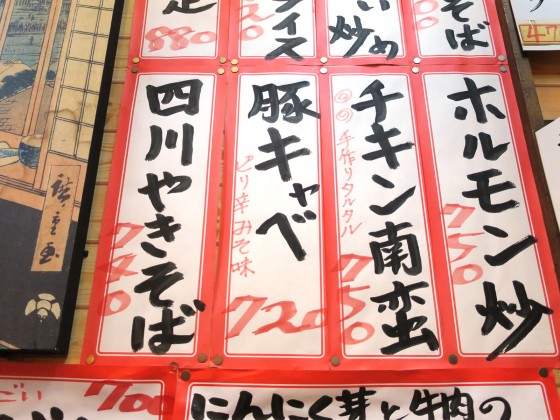 そば
い炒め
ライス
定
880
ホルモン炒
750
チキン南蛮
手作りタルタル
750
豚キャベ
ピリ辛みそ味
720
四川やきそば
740
廣重画
にんにく芽と牛肉の
700